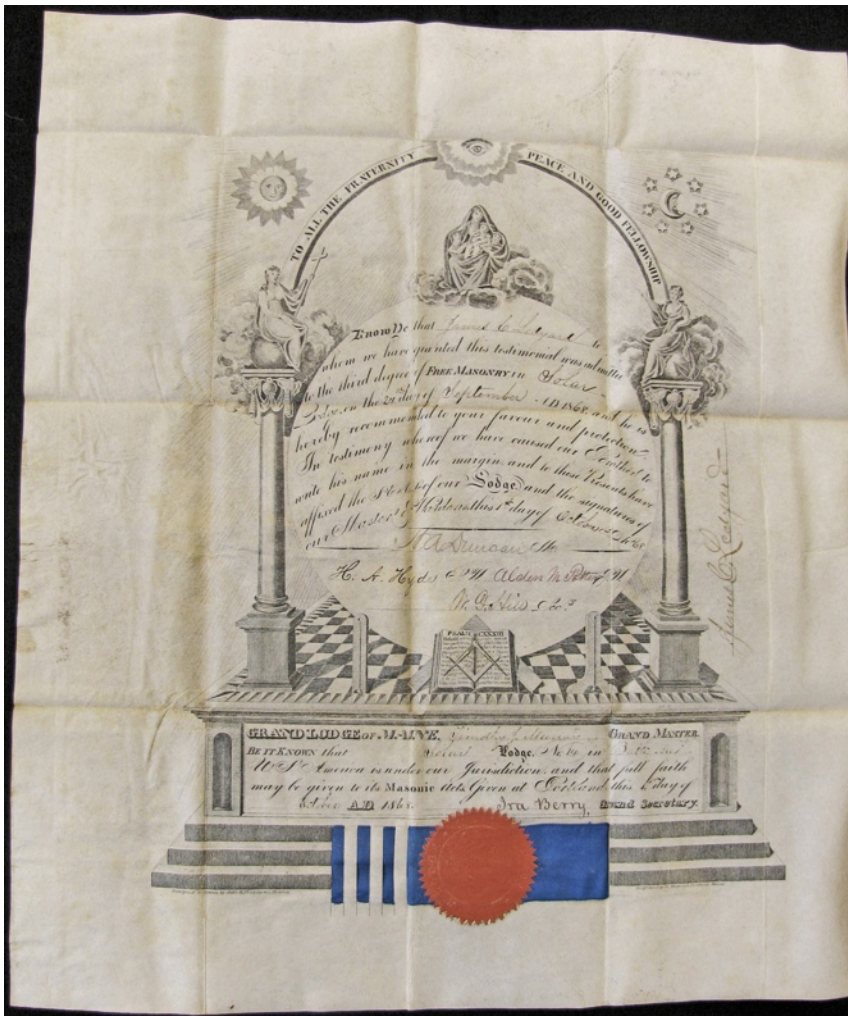 TO ALL THE FRATERNITY PEACE AND GOOD FELLOWSHIP
Know Ye that James C. Ledyard to
whom we have granted this testimonial was admitted
to the third degree of FREE MASONRY in Solar
Lodge, on the day of September A.D. 1868 and he is
hereby recommended to your favour and protection.
In testimony whereof we have caused our Brother to
write his name in the margin and to these Presents have
affixed the Seal of our Lodge and the signatures of
our Master & Wardens this 1st day of October 1868
A Duncan
H. A. Hyde Alden M.
W. G. Hill
James C. Ledyard
PSALM CXXXIII
GRAND LODGE OF MAINE, Timothy J. Murray GRAND MASTER.
BE IT KNOWN that Solar Lodge, No 14 in
U. S. America is under our Jurisdiction and that full faith
may be given to its Masonic Acts Given at Portland this day of
October A.D 1868. Ira Berry, Grand Secretary.